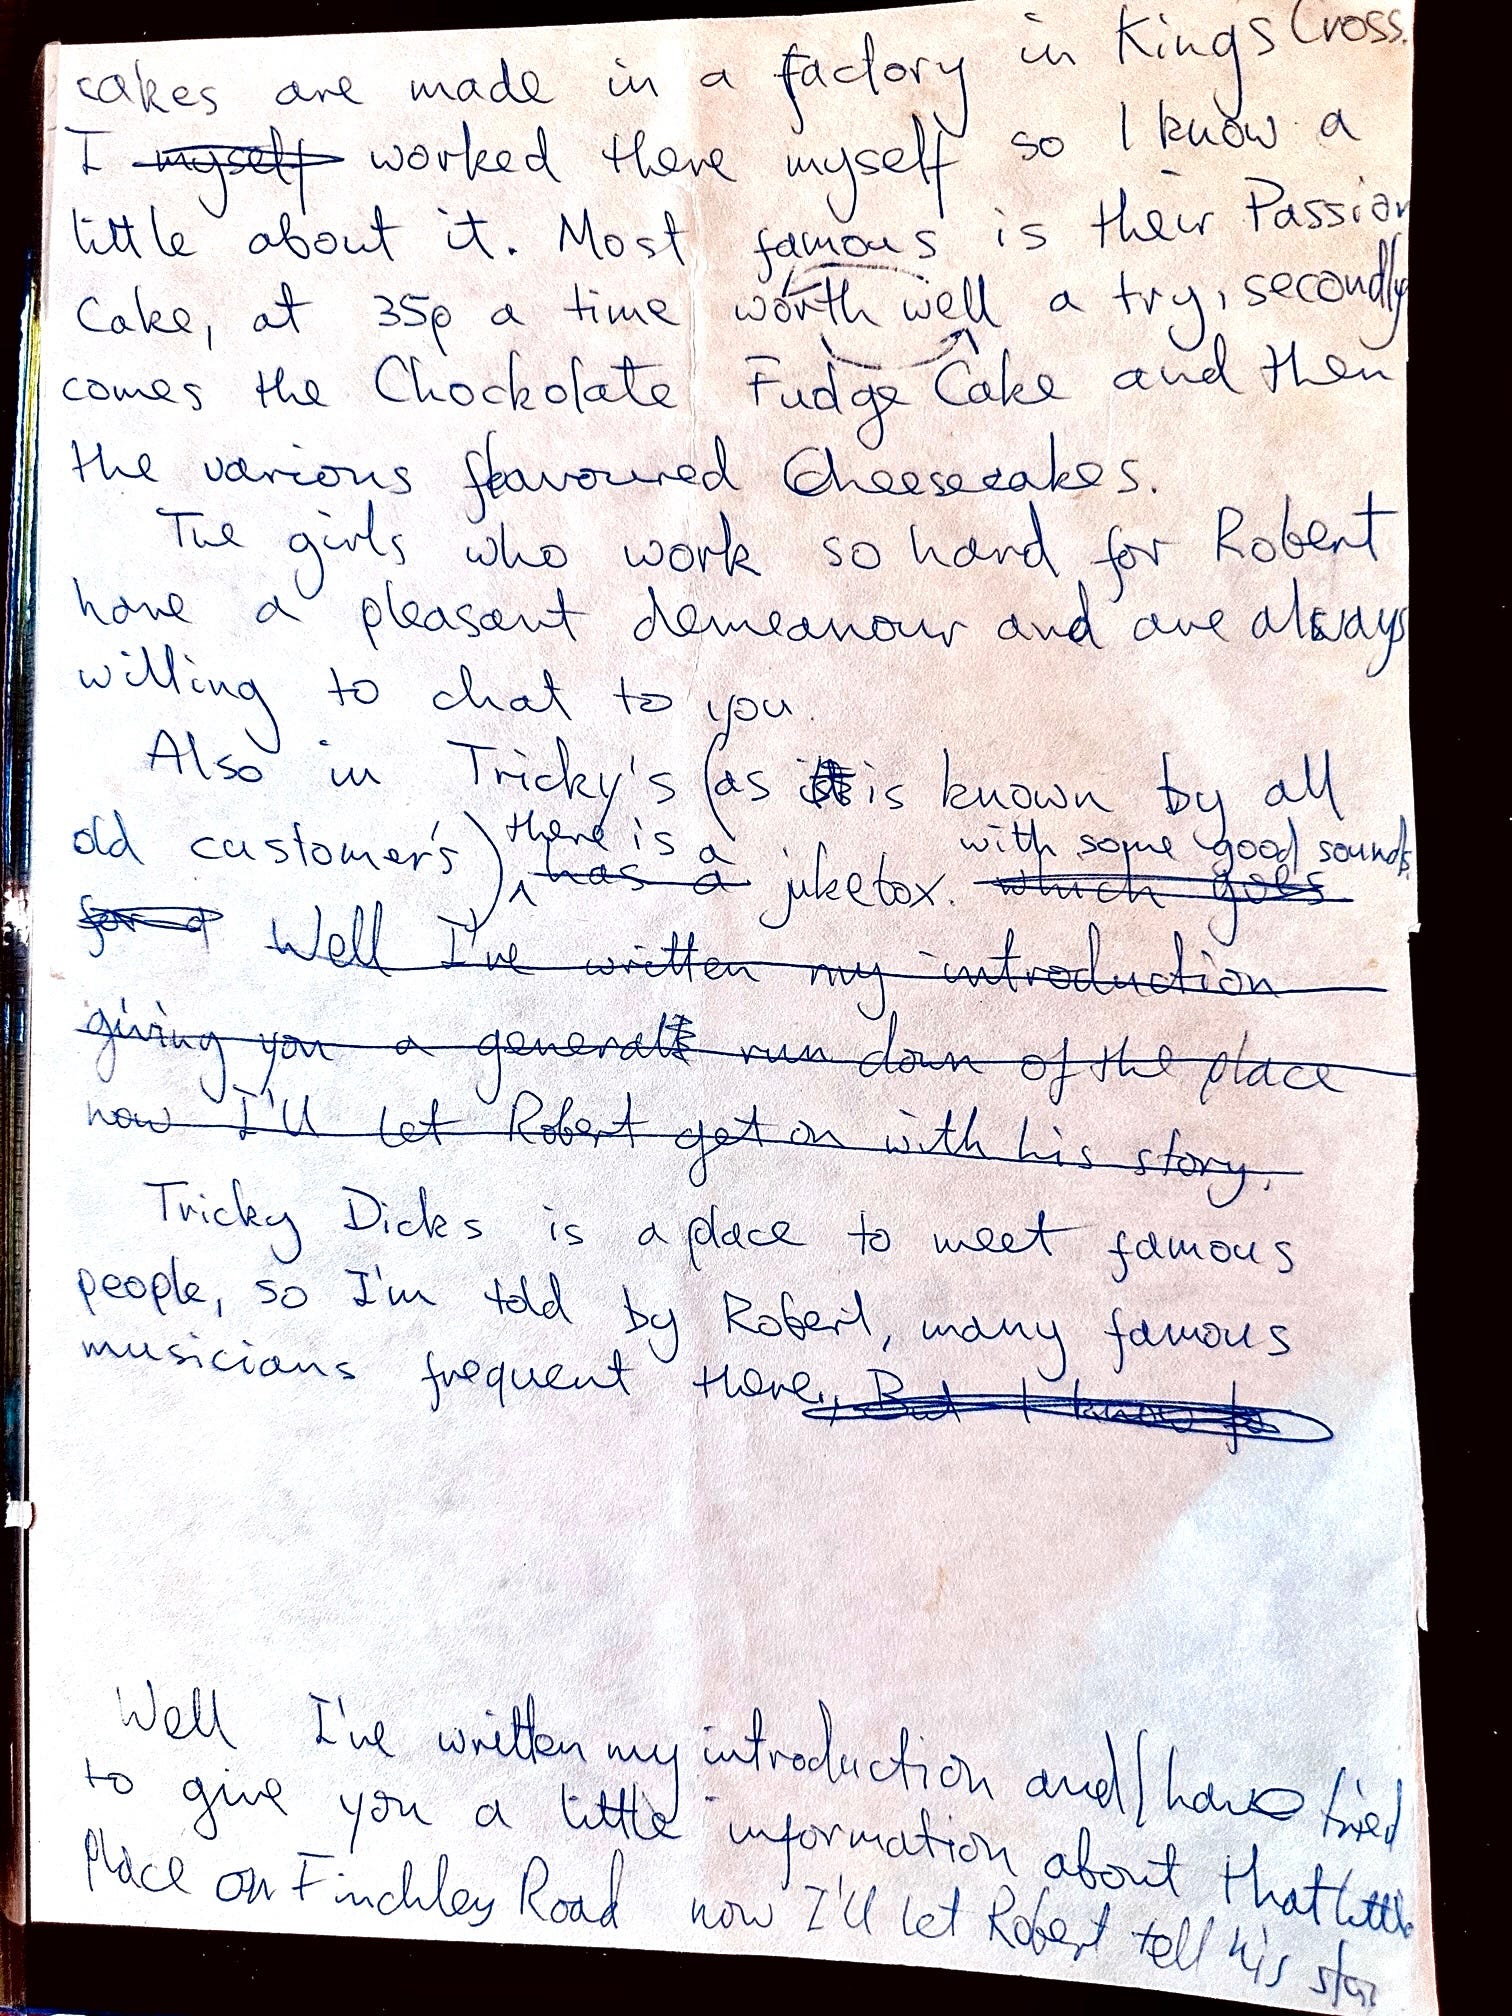 cakes are made in a factory in Kings Cross.
I myself worked there myself so I know a
little about it. Most famous is their Passion
Cake, at 35p a time worth well a try, secondly
comes the Chockolate Fudge Cake and then
the various flavoured Cheesecakes.
The girls who work so hard for Robert
have a pleasant demeanour and are always
willing to chat to you.
Also in Tricky's (as it is known by all
there is a with some good sounds.
old customer's) has a jukebox. which goes
for a Well I've written my introduction
giving you a general run down of the place
now I'll let Robert get on with his story.
Tricky Dicks is a place to meet famous
people, so I'm told by Robert, many famous
musicians frequent there, But I know
Well I've written my introduction and I have tried
to give you a little information about that little
place on Finchley Road now I'll let Robert tell his